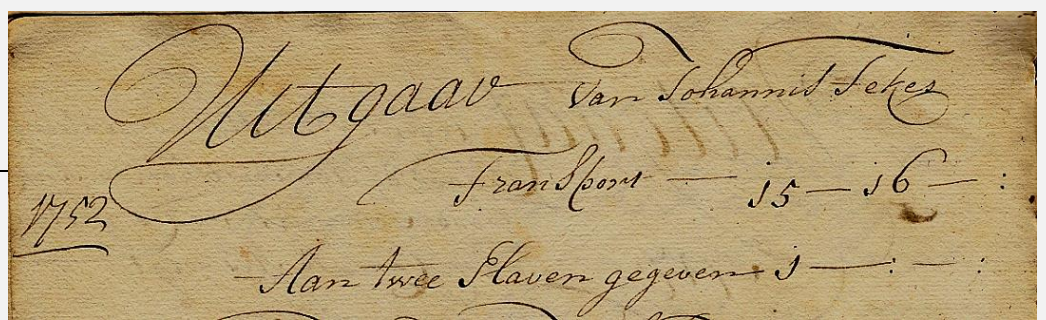 Uitgaav van Johannis Fekes
Transport — 15 — 16 — :
1752
Aan twee Slaven gegeven 1 — : — :